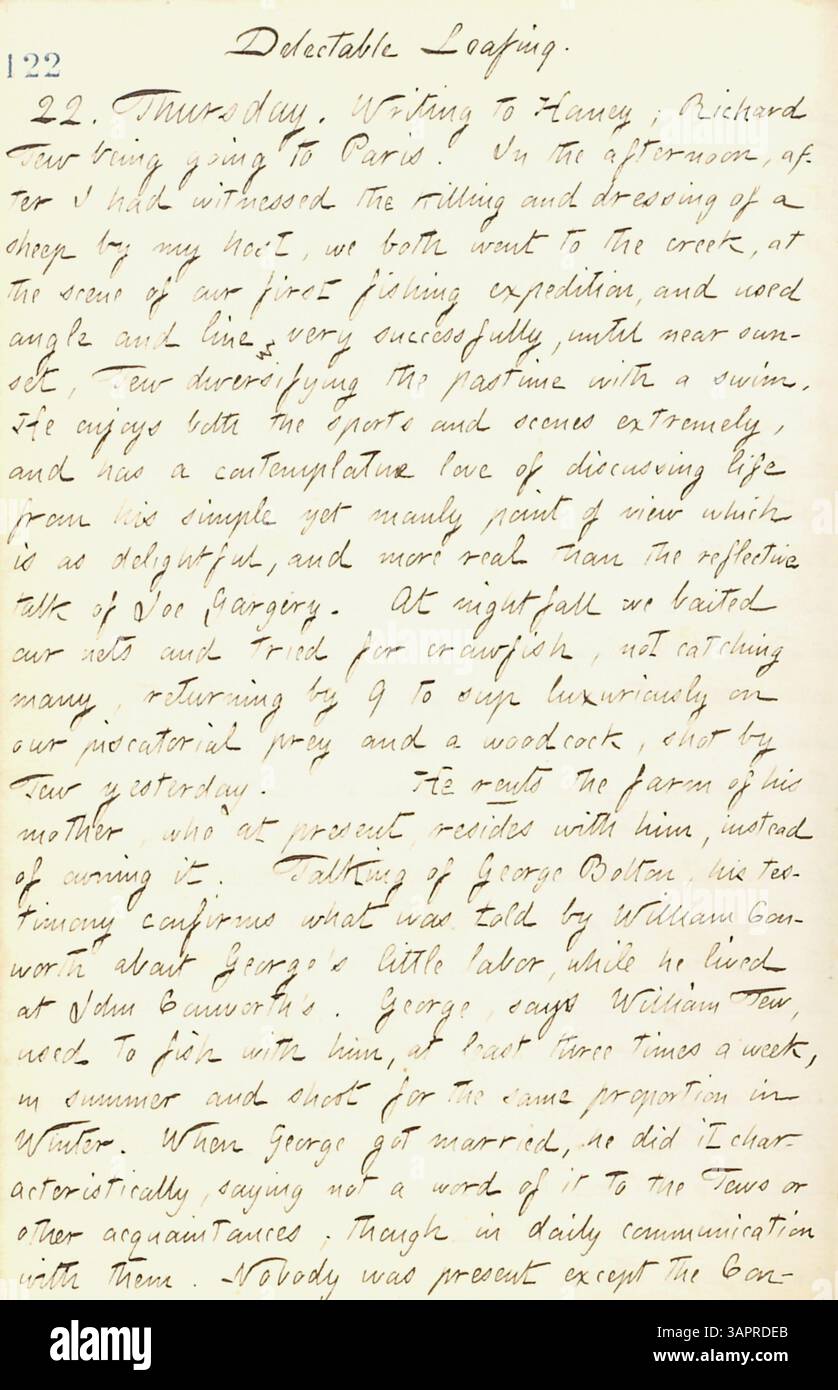 Delectable Loafing.
122
22. Thursday. Writing to Haney, Richard
Tew being going to Paris. In the afternoon, af-
ter I had witnessed the killing and dressing of a
sheep by my host, we both went to the creek, at
the scene of our first fishing expedition, and used
angle and line very successfully, until near sun-
set, Tew diversifying the pastime with a swim.
He enjoys both the sports and scenes extremely,
and has a contemplative love of discussing life
from his simple yet manly point of view which
is as delightful, and more real than the reflective
talk of Joe Gargery. At nightfall we baited
our nets and tried for crawfish, not catching
many, returning by 9 to sup luxuriously on
our piscatorial prey and a woodcock, shot by
Tew yesterday. He rents the farm of his
mother, who at present, resides with him, instead
of owning it. Talking of George Bolton, his tes-
timony confirms what was told by William Con-
worth about George's little labor, while he lived
at John Conworth's. George, says William Tew,
used to fish with him, at least three times a week,
in summer and shoot for the same proportion in
Winter. When George got married, he did it char-
acteristically, saying not a word of it to the Tews or
other acquaintances, though in daily communication
with them. Nobody was present except the Con-
alamy
Image ID: 3APRDEB
www.alamy.com